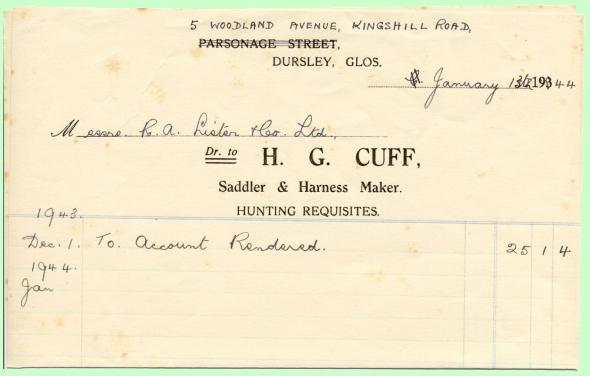 5 WOODLAND AVENUE, KINGSHILL ROAD,
PARSONAGE STREET,
DURSLEY, GLOS.
January 1944
Messrs. R. A. Lister & Co. Ltd.,
Dr. to H. G. CUFF,
Saddler & Harness Maker.
HUNTING REQUISITES.
1943.
Dec. 1. To Account Rendered. 25 1 4
1944.
Jan